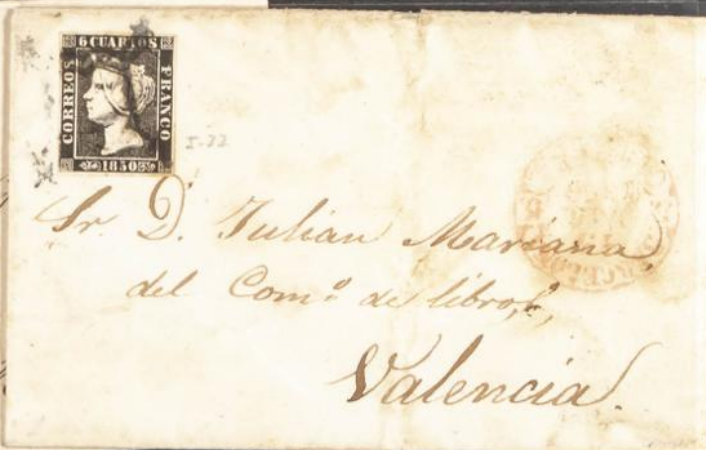 6 CUARTOS
CORREOS
FRANCO
1850
Sr. D. Julian Mariana,
del Com.º de libros,
Valencia.